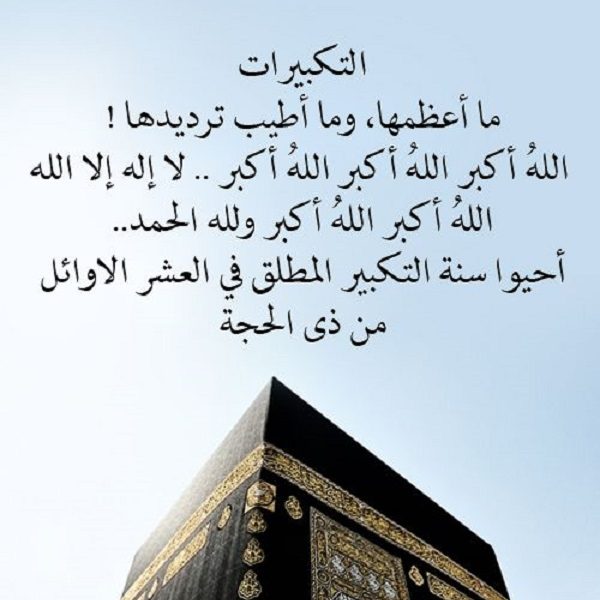 التكبيرات
ما أعظمها، وما أطيب ترديدها !
اللهُ أكبر اللهُ أكبر اللهُ أكبر .. لا إله إلا الله
اللهُ أكبر اللهُ أكبر ولله الحمد..
أحيوا سنة التكبير المطلق في العشر الاوائل
من ذى الحجة